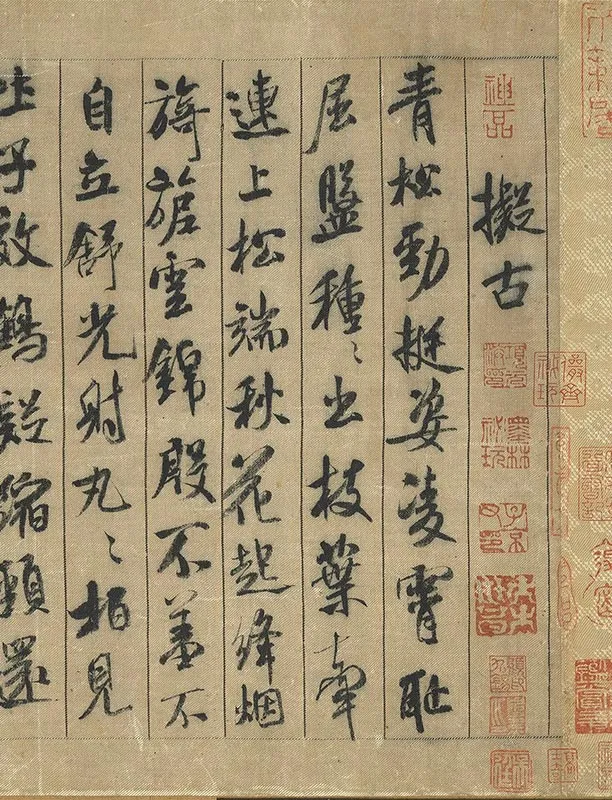 擬古
青松勁挺姿凌霄恥
屈盤種〻出枝葉牽
連上松端秋花起絳烟
旖旎雲錦殷不羞不
自立舒光射丸〻柏見
子效鶴疑縮頸還